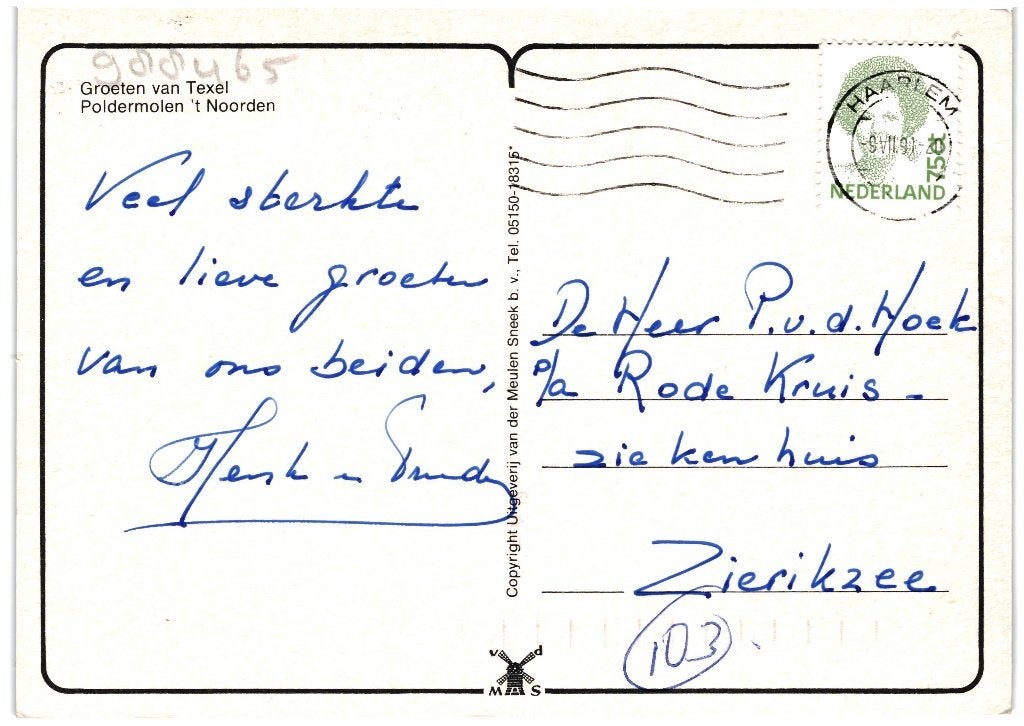 988465
Groeten van Texel
Poldermolen 't Noorden
Veel sterkte
en lieve groeten
van ons beiden,
Henk en Trudy
Copyright Uitgeverij van der Meulen Sneek b. v., Tel. 05150-18315*
HAARLEM
75ct
NEDERLAND
De Heer P.v.d.Hoek
p/a Rode Kruis-
ziekenhuis
Zierikzee
103
v d
M S